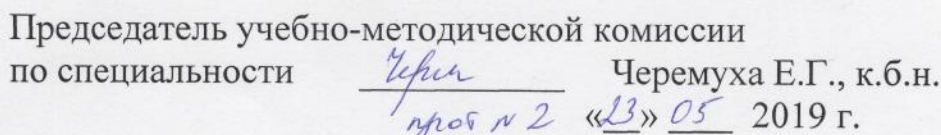 Председатель учебно-методической комиссии
по специальности Черемуха Е.Г., к.б.н.
прот N 2 «23» 05 2019 г.